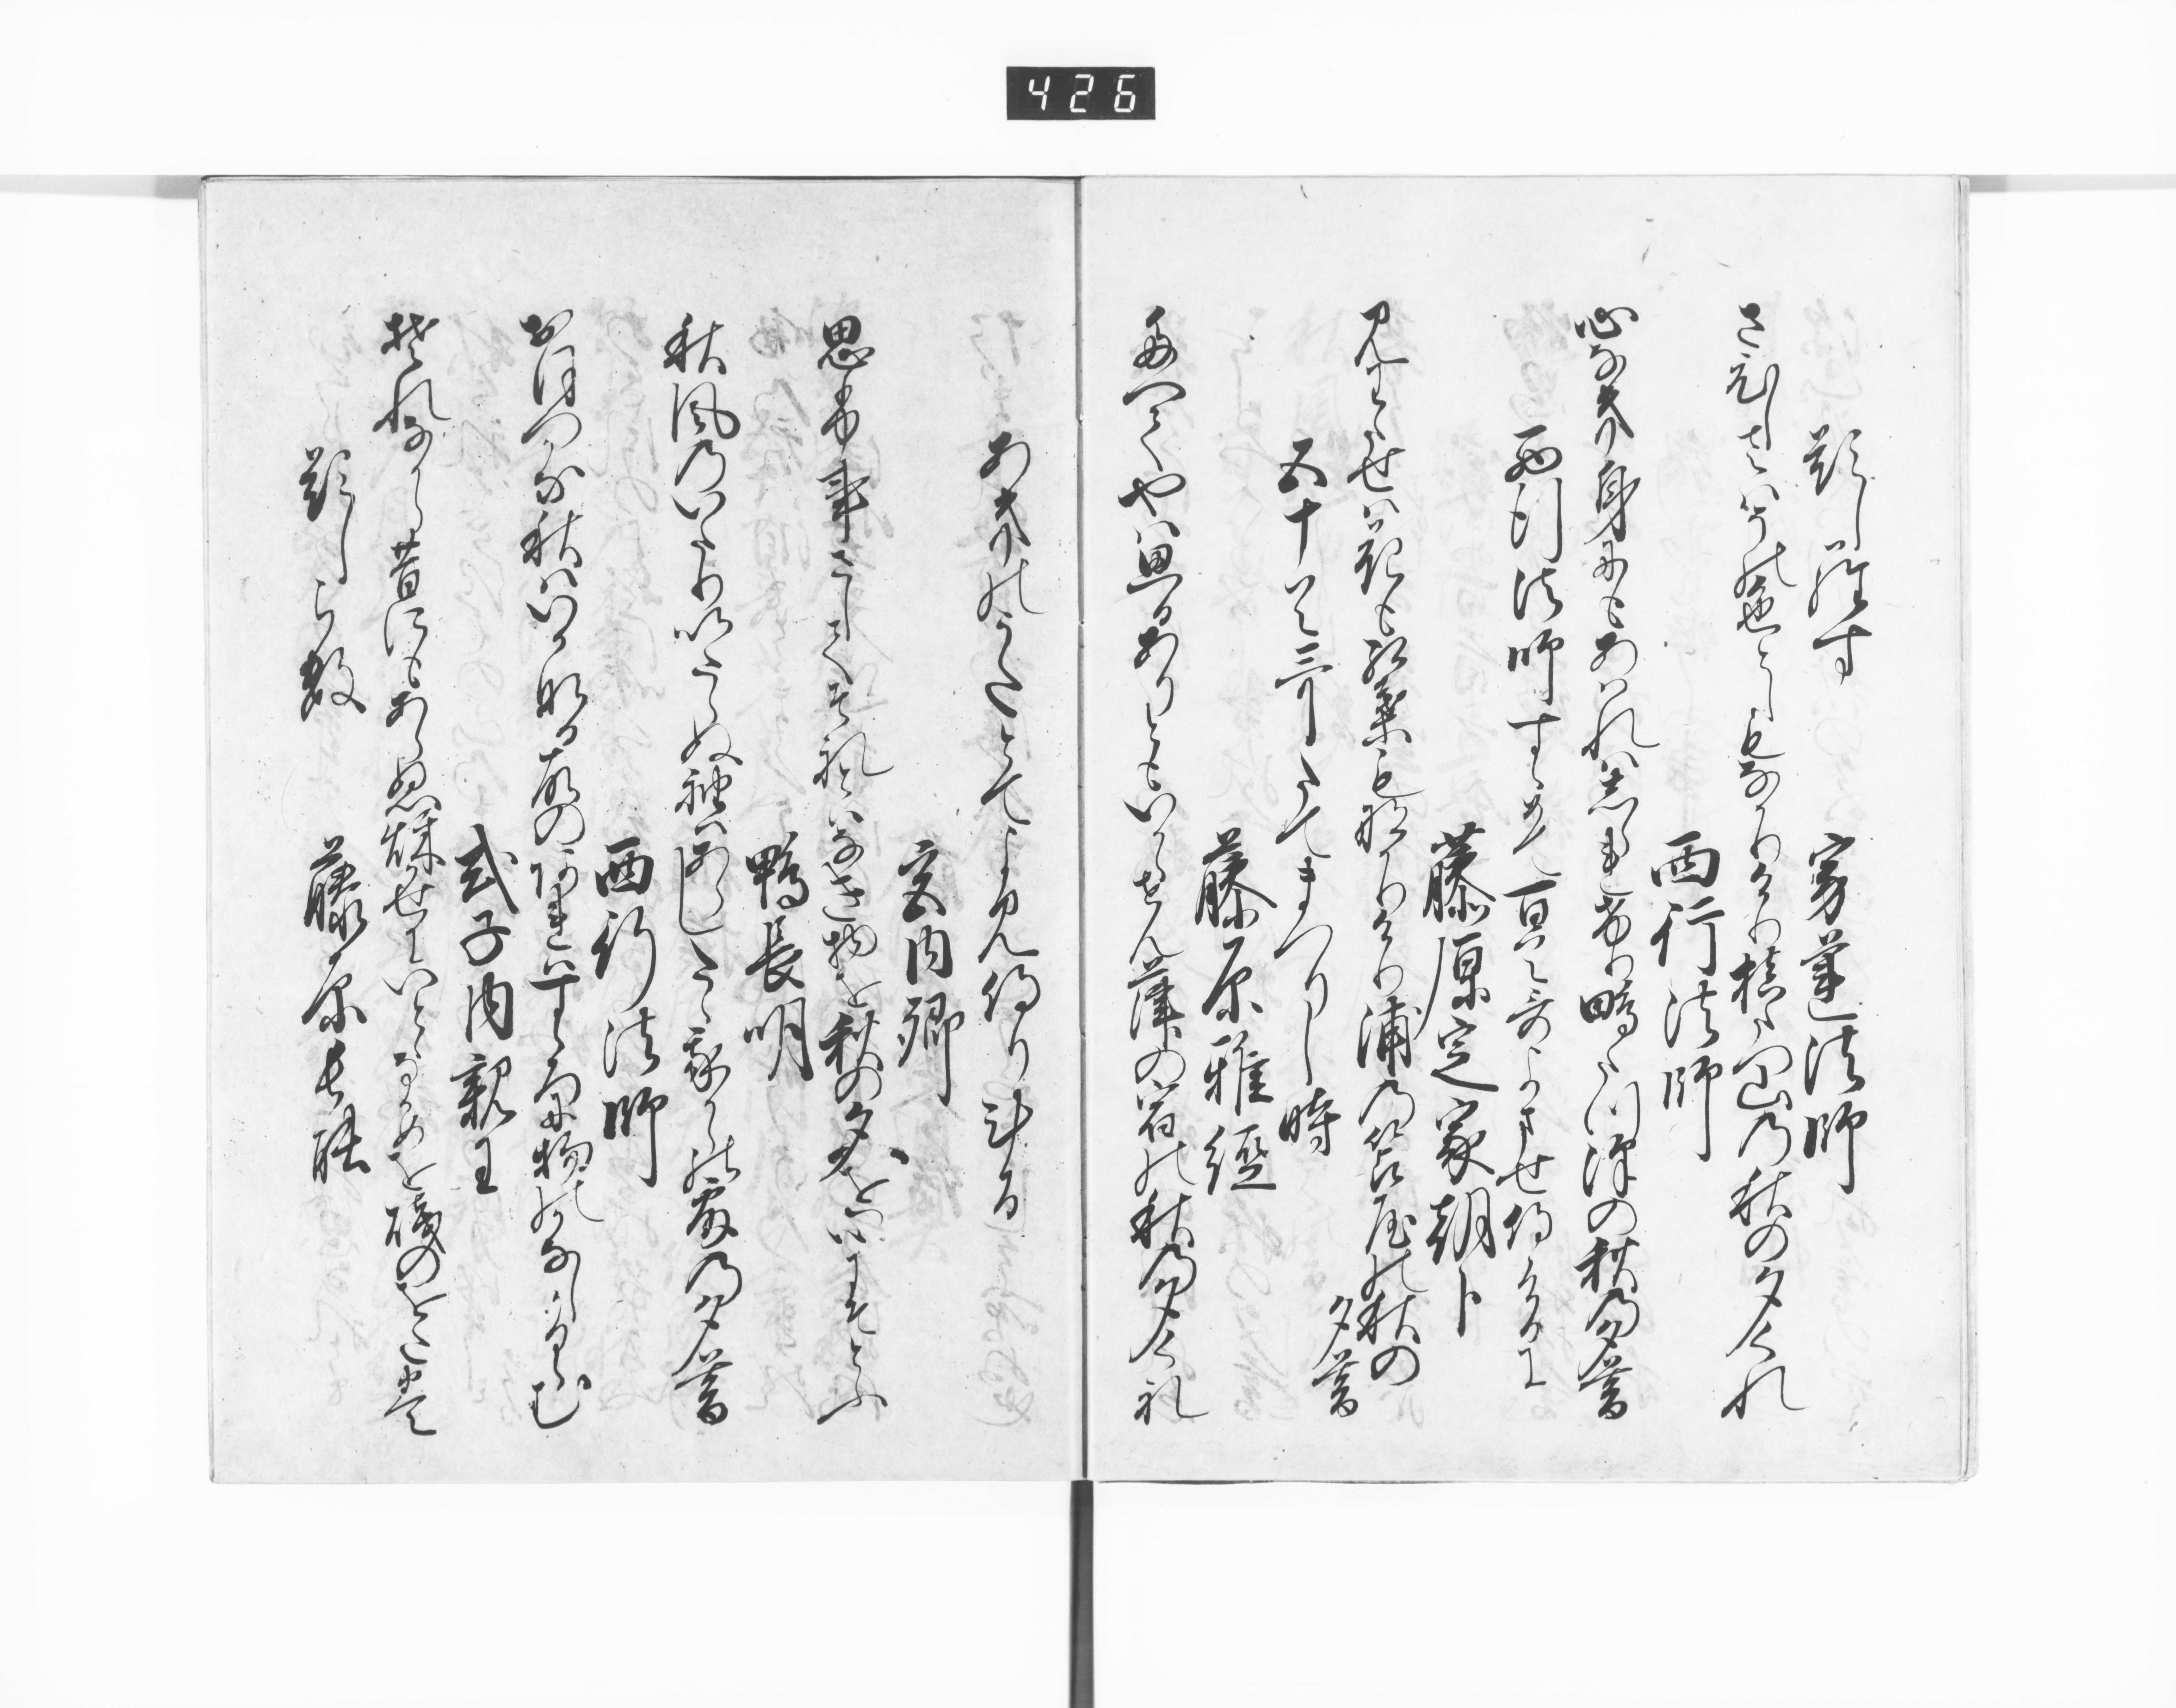 426
題しらす　寂蓮法師
さひしさはその色としもなかりけり槙たつ山の秋の夕くれ
西行法師
心なき身にもあはれはしられけり鴫たつ沢の秋の夕暮
西行法師すゝめて百首哥よませ侍けるに
藤原定家朝臣
見わたせは花も紅葉もなかりけり浦の苫屋の秋の
夕暮
五十首哥たてまつりし時
藤原雅経
たへてやは思ありともいかゝせん葎の宿の秋の夕くれ
あきのうたとてよみ侍りける
宮内卿
思事さしてそれとはなき物を秋の夕を心にそとふ
鴨長明
秋風のいたりいたらぬ袖はあらしたゝ我からの露の夕暮
西行法師
おほつかな秋はいかなる故のあれはすゝろに物のかなしかるらむ
式子内親王
それなから昔にもあらぬ秋風にいとゝなかめをしつのをたまき
題しらす　藤原長能